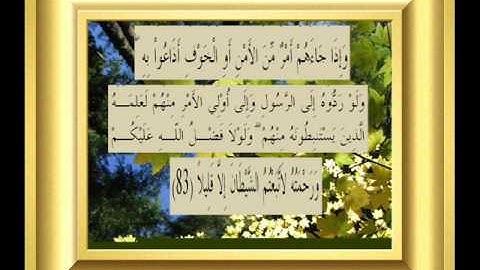 وَإِذَا جَاءَهُمْ أَمْرٌ مِّنَ الْأَمْنِ أَوِ الْخَوْفِ أَذَاعُوا۟ بِهِ ۖ
وَلَوْ رَدُّوهُ إِلَى الرَّسُولِ وَإِلَىٰ أُوْلِي الْأَمْرِ مِنْهُمْ لَعَلِمَـهُ
الَّذِينَ يَسْتَنبِطُونَهُ مِنْهُمْ ۗ وَلَوْلَا فَضْـلُ اللَّـهِ عَلَيْكُـمْ
وَرَحْمَتُهُ لَاتَّبَعْتُمُ الشَّيْطَانَ إِلَّا قَلِيلًا (83)